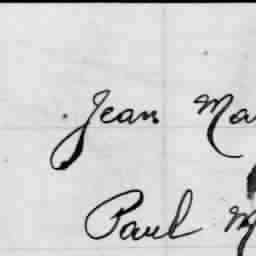 Jean Ma
Paul M